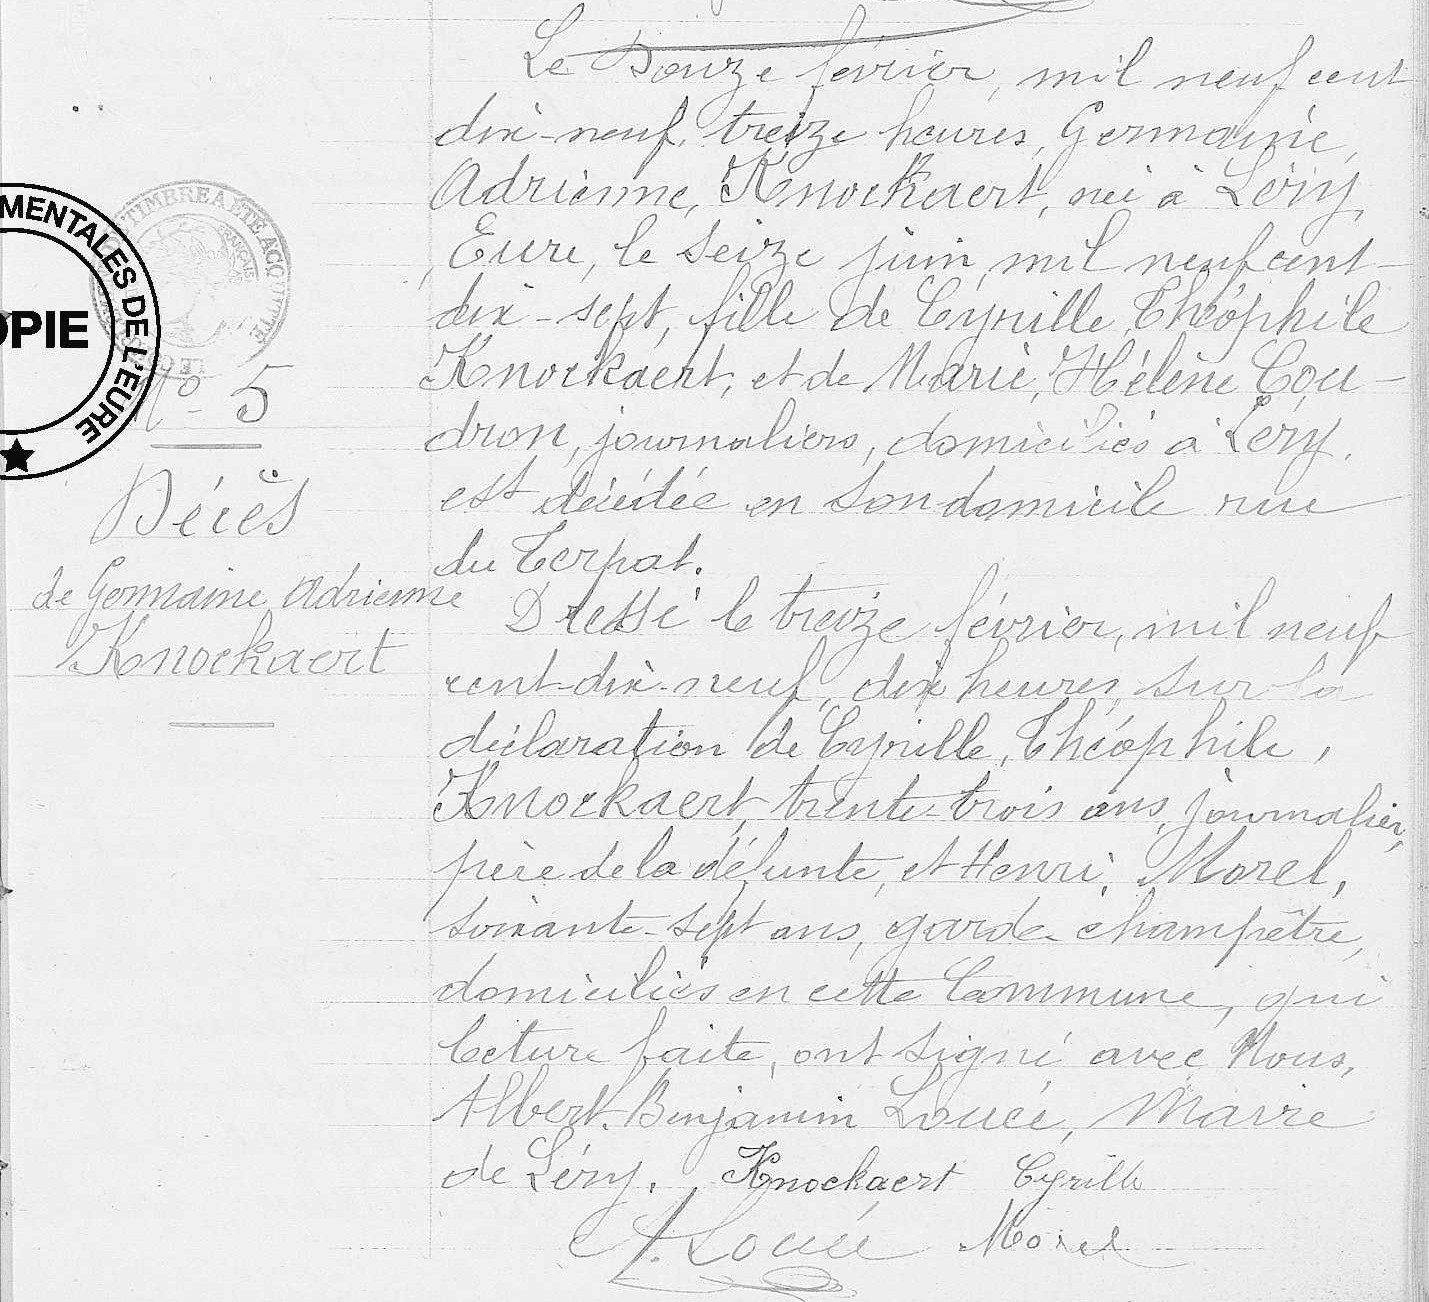 Le Douze février, mil neuf cent
dix-neuf, treize heures, Germaine,
Adrienne, Knockaert, née à Léry,
Eure, le seize juin, mil neuf cent-
dix-sept, fille de Cyrille, Théophile
Knockaert, et de Marie, Hélène Cou-
dron, journaliers, domiciliés à Léry.
est décédée en son domicile rue
du Terpat.
Dressé le treize février, mil neuf
cent-dix-neuf, dix heures, sur la
déclaration de Cyrille, Théophile,
Knockaert, trente-trois ans, journalier,
père de la défunte, et Henri, Morel,
soixante-sept ans, garde champêtre,
domiciliés en cette Commune, qui
lecture faite, ont signé avec Nous,
Albert Benjamin Loucé, Maire
de Léry. Knockaert Cyrille
A. Loucé Morel
N° 5
Décès
de Germaine Adrienne
Knockaert
MENTALES DE L'EURE
OPIE
TIMBRE A ÉTÉ ACQUITTÉ